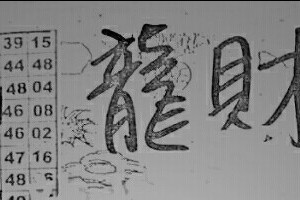 39 15
44 48
48 04
46 08
46 02
47 16
48
龍財